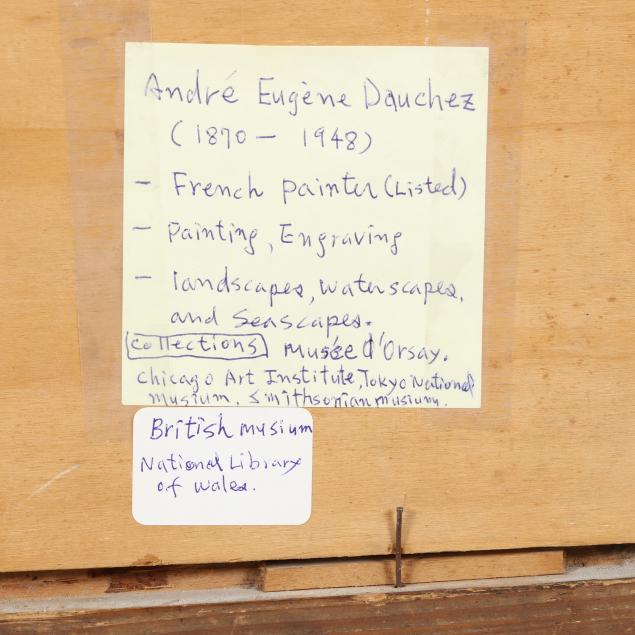 André Eugène Dauchez
(1870 - 1948)
- French painter (Listed)
- Painting, Engraving
- landscapes, waterscapes,
and Seascapes.
Collections Musée d'Orsay.
Chicago Art Institute, Tokyo National
musium, Smithsonian musium.
British musium
National Library
of wales.